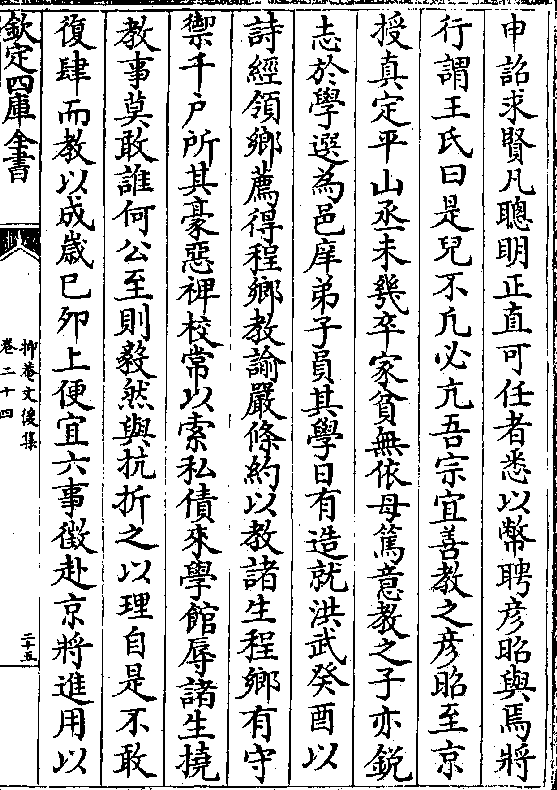 申詔求賢凡聰明正直可任者悉以幣聘彦昭與焉將
行謂王氏曰是兒不凡必亢吾宗宜善教之彦昭至京
授真定平山丞未幾卒家貧無依母篤意教之子亦銳
志於學選為邑庠弟子員其學日有造就洪武癸酉以
詩經領鄉薦得程鄉教諭嚴條約以教諸生程鄉有守
禦千户所其豪惡裨校常以索私債來學館辱諸生撓
教事莫敢誰何公至則毅然與抗折之以理自是不敢
復肆而教以成歲已夘上便宜六事徵赴京將進用以
欽定四庫全書
抑菴文後集
卷二十四
二十五